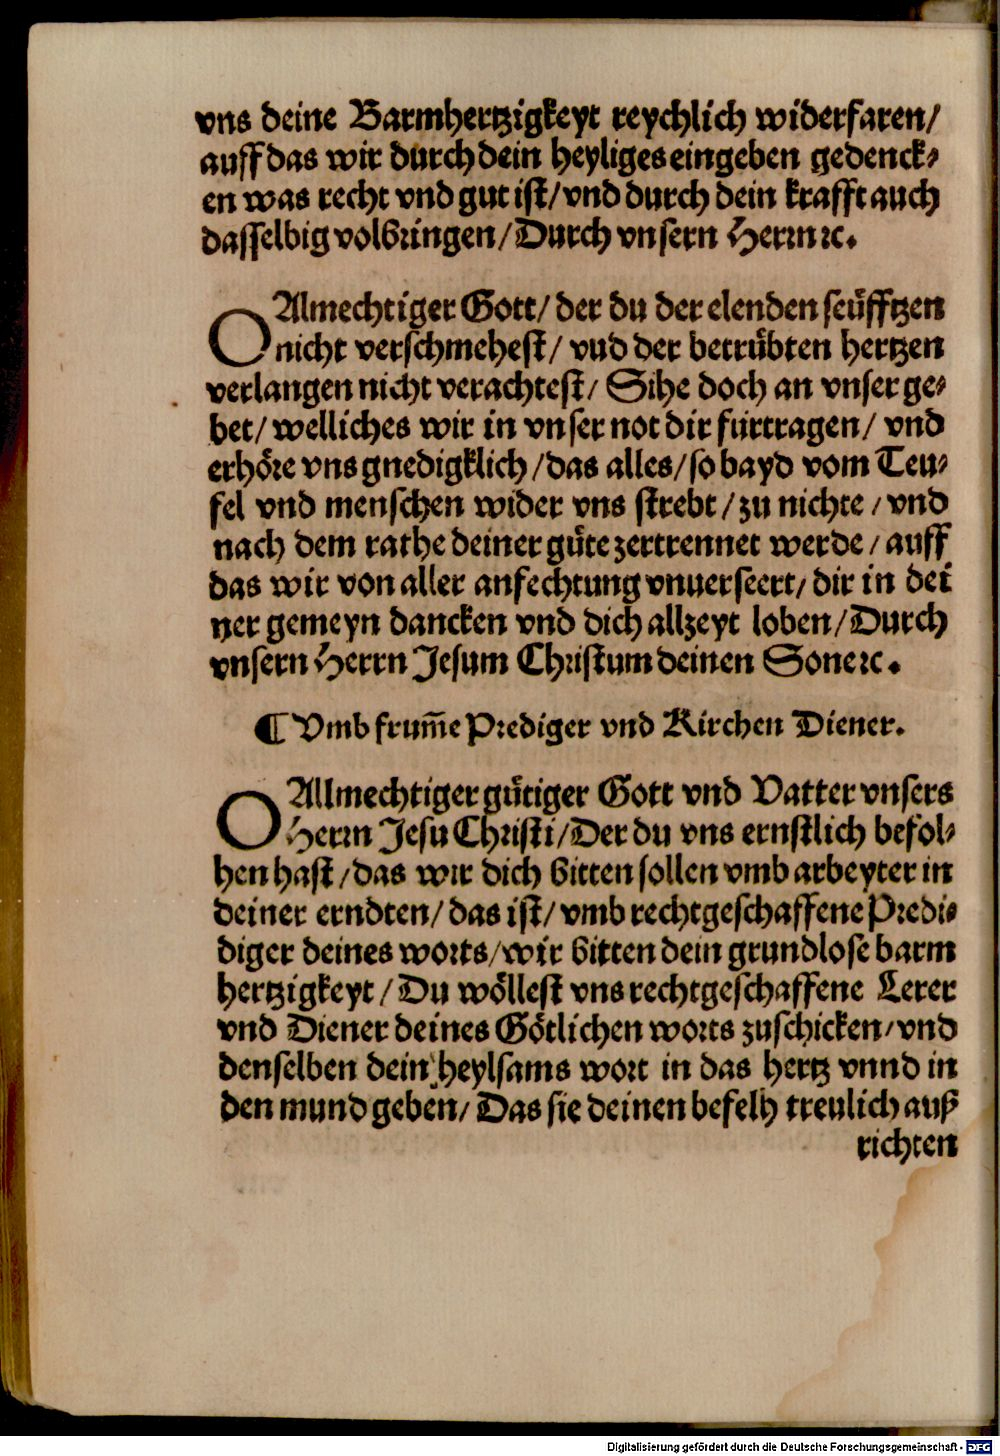 vns deine Barmhertzigkeyt reychlich widerfaren/
auff das wir durch dein heyliges eingeben gedenck⸗
en was recht vnd gut ist/ vnd durch dein krafft auch
dasselbig volbringen/ Durch vnsern Herrn ⁊c.
O Almechtiger Gott/ der du der elenden seüfftzen
nicht verschmehest/ vud der betrübten hertzen
verlangen nicht verachtest/ Sihe doch an vnser ge⸗
bet/ welliches wir in vnser not dir furtragen/ vnd
erhöre vns gnedigklich/ das alles/ so bayd vom Teu⸗
fel vnd menschen wider vns strebt/ zu nichte/ vnd
nach dem rathe deiner güte zertrennet werde/ auff
das wir von aller anfechtung vnuerseert/ dir in dei
ner gemeyn dancken vnd dich allzeyt loben/ Durch
vnsern Herrn Jesum Christum deinen Sone ⁊c.
¶ Vmb frum̄e Prediger vnd Kirchen Diener.
O Allmechtiger gütiger Gott vnd Vatter vnsers
Herrn Jesu Christi/ Der du vns ernstlich befol⸗
hen hast/ das wir dich bitten sollen vmb arbeyter in
deiner erndten/ das ist/ vmb rechtgeschaffene Predi⸗
diger deines worts/ wir bitten dein grundlose barm
hertzigkeyt/ Du wöllest vns rechtgeschaffene Lerer
vnd Diener deines Götlichen worts zuschicken/ vnd
denselben dein heylsams wort in das hertz vnnd in
den mund geben/ Das sie deinen befelh treulich auß
richten
Digitalisierung gefördert durch die Deutsche Forschungsgemeinschaft - DFG